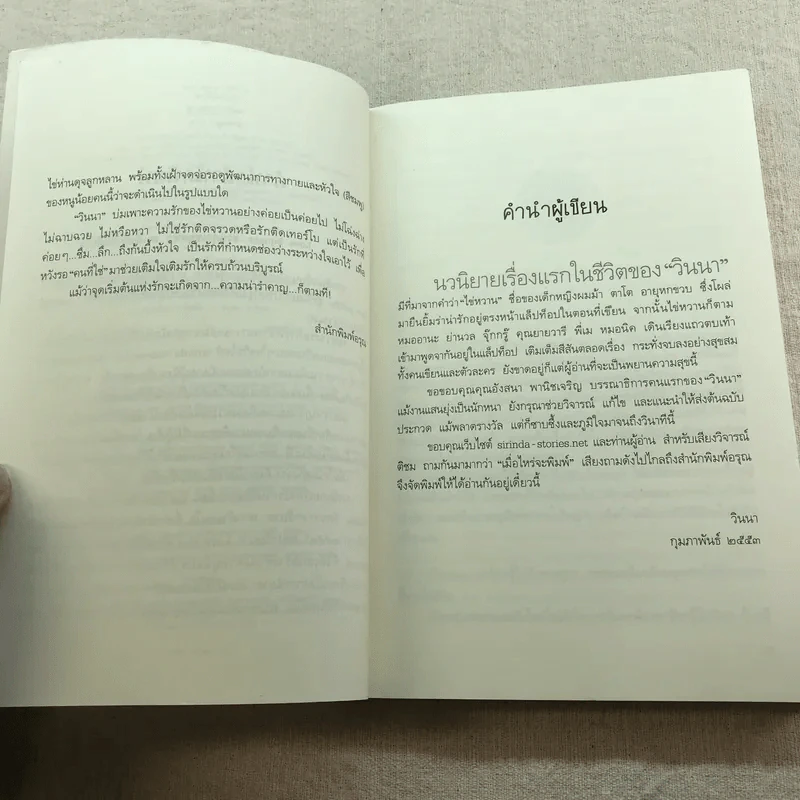 ไข่ห่านดุจลูกหลาน พร้อมทั้งเฝ้าจดจ่อรอดูพัฒนาการทางกายและหัวใจ (สีชมพู)
ของหนูน้อยคนนี้ว่าจะดำเนินไปในรูปแบบใด
“วินนา” บ่มเพาะความรักของไข่หวานอย่างค่อยเป็นค่อยไป ไม่โฉ่งฉ่าง
ไม่ฉาบฉวย ไม่หวือหวา ไม่ใช่รักติดจรวดหรือรักติดเทอร์โบ แต่เป็นรักที่
ค่อยๆ...ซึม...ลึก...ถึงก้นบึ้งหัวใจ เป็นรักที่กำหนดช่องว่างระหว่างใจเอาไว้ เพื่อ
หวังรอ “คนที่ใช่” มาช่วยเติมใจเติมรักให้ครบถ้วนบริบูรณ์
แม้ว่าจุดเริ่มต้นแห่งรักจะเกิดจาก...ความน่ารำคาญ...ก็ตามที!
สำนักพิมพ์อรุณ
คำนำผู้เขียน
นวนิยายเรื่องแรกในชีวิตของ “วินนา”
มีที่มาจากคำว่า “ไข่หวาน” ชื่อของเด็กหญิงผมม้า ตาโต อายุหกขวบ ซึ่งโผล่
มายืนยิ้มร่าน่ารักอยู่ตรงหน้าแล็ปท็อปในตอนที่เขียน จากนั้นไข่หวานก็ตาม
หมออานะ ย่านวล จุ๊กกรู๊ คุณยายวารี พี่เม หมอนิค เดินเรียงแถวตบเท้า
เข้ามาพูดจากันอยู่ในแล็ปท็อป เติมเต็มสีสันตลอดเรื่อง กระทั่งจบลงอย่างสุขสม
ทั้งคนเขียนและตัวละคร ยังขาดอยู่ก็แต่ผู้อ่านที่จะเป็นพยานความสุขนี้
ขอขอบคุณคุณอังสนา พานิชเจริญ บรรณาธิการคนแรกของ “วินนา”
แม้งานแสนยุ่งเป็นนักหนา ยังกรุณาช่วยวิจารณ์ แก้ไข และแนะนำให้ส่งต้นฉบับ
ประกวด แม้พลาดรางวัล แต่ก็ซาบซึ้งและภูมิใจมาจนถึงวินาทีนี้
ขอบคุณเว็บไซต์ sirinda-stories.net และท่านผู้อ่าน สำหรับเสียงวิจารณ์
ติชม ถามกันมามากว่า “เมื่อไหร่จะพิมพ์” เสียงถามดังไปไกลถึงสำนักพิมพ์อรุณ
จึงจัดพิมพ์ให้ได้อ่านกันอยู่เดี๋ยวนี้
วินนา
กุมภาพันธ์ ๒๕๕๓